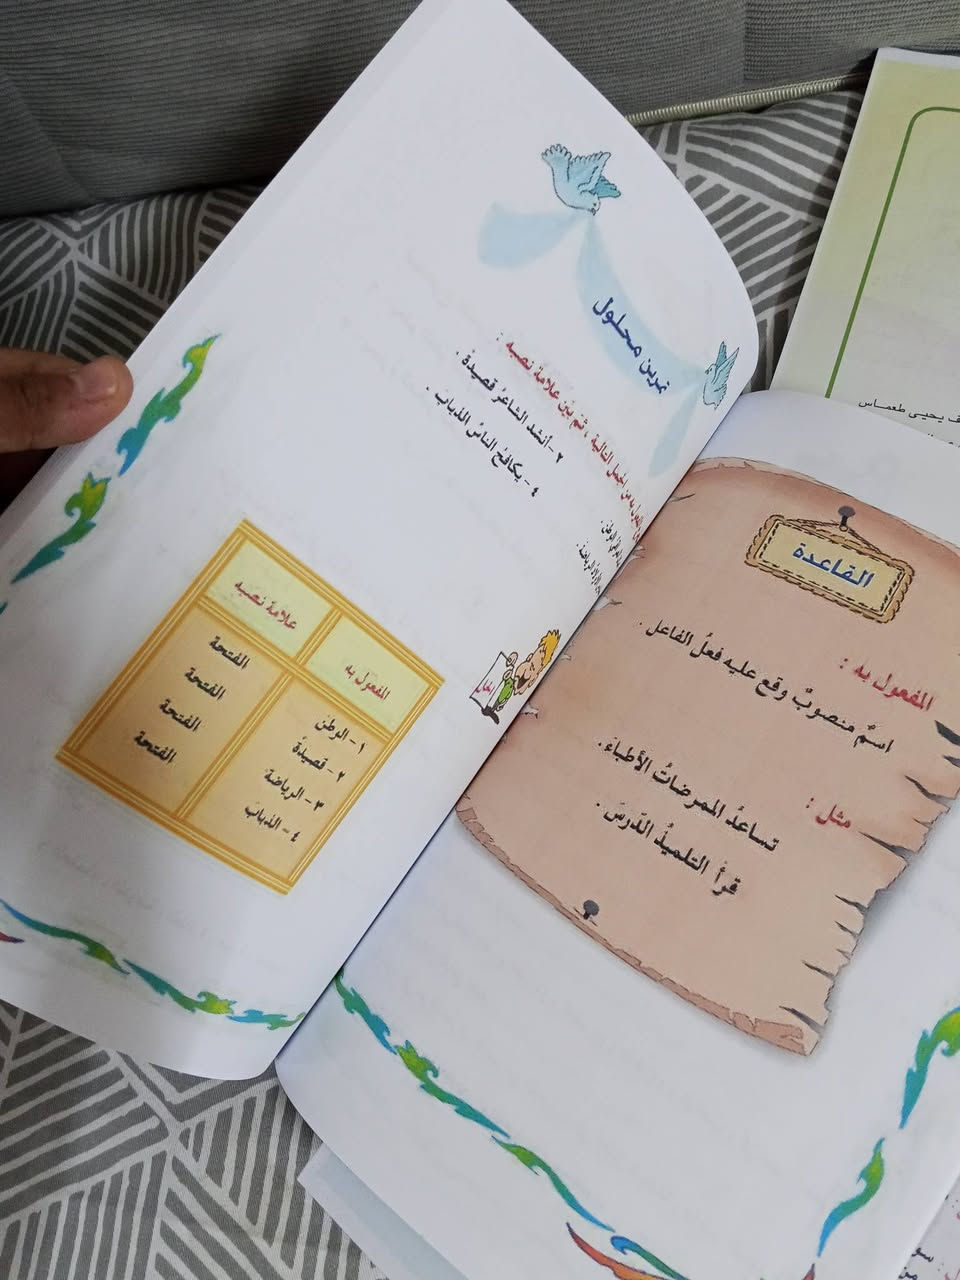 القاعدة
المفعول به :
اسمٌ منصوبٌ وقع عليه فعلُ الفاعل .
مثل :
تساعدُ الممرضاتُ الأطباءَ.
قرأ التلميذُ الدّرسَ.
تمرين محلول
المفعول به من الجمل التالية ، ثم بَين علامة نصبه :
٢- أنشد الشاعرُ قصيدةً .
٤ - يكافحُ الناسُ الذبابَ .
الوطن.
الحل
المفعول به
علامة نصبه
١ - الوطن
الفتحة
٢ - قصيدةً
الفتحة
٣ - الرياضة
الفتحة
٤ - الذبابَ
الفتحة
يحيى طعماس